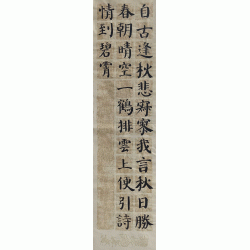 自古逢秋悲寂寥我言秋日勝
春朝晴空一鶴排雲上便引詩
情到碧霄